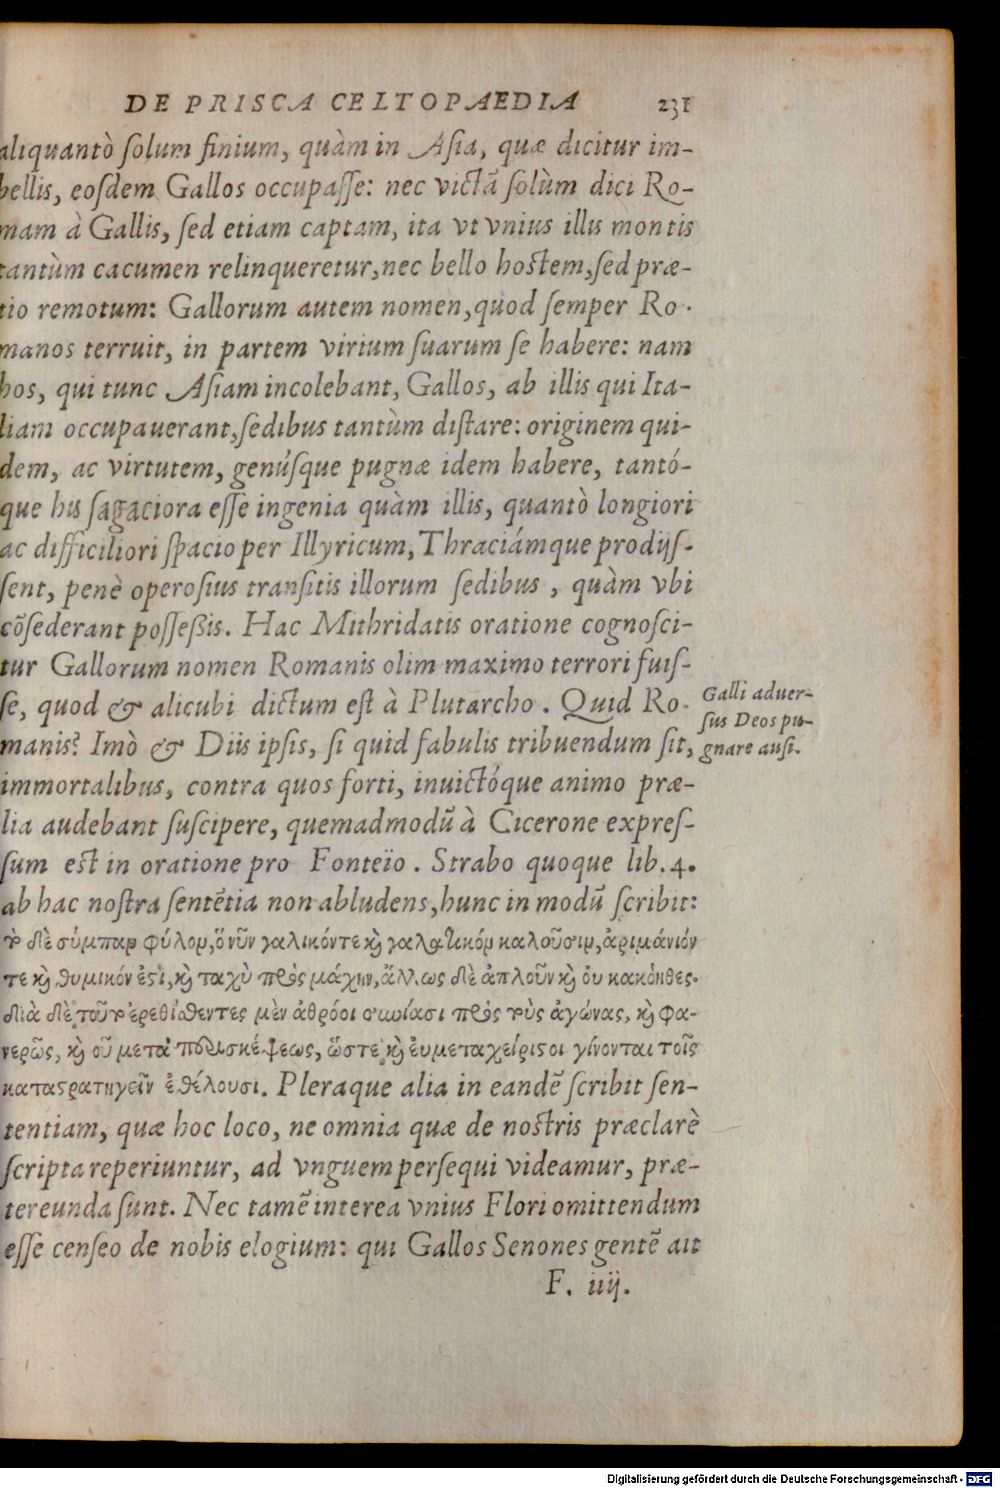 DE PRISCA CELTOPAEDIA 231
aliquantò ſolum finium, quàm in Aſia, quæ dicitur im-
bellis, eoſdem Gallos occupaſſe: nec victã ſolùm dici Ro-
mam à Gallis, ſed etiam captam, ita vt vnius illis montis
tantùm cacumen relinqueretur, nec bello hoſtem, ſed præ-
tio remotum: Gallorum autem nomen, quod ſemper Ro-
manos terruit, in partem virium ſuarum ſe habere: nam
hos, qui tunc Aſiam incolebant, Gallos, ab illis qui Ita-
liam occupauerant, ſedibus tantùm diſtare: originem qui-
dem, ac virtutem, genúſque pugnæ idem habere, tantó-
que his ſagaciora eſſe ingenia quàm illis, quantò longiori
ac difficiliori ſpacio per Illyricum, Thraciámque prodijſ-
ſent, penè operoſius tranſitis illorum ſedibus, quàm vbi
cõſederant poſſeßis. Hac Mithridatis oratione cognoſci-
tur Gallorum nomen Romanis olim maximo terrori fuiſ-
ſe, quod & alicubi dictum eſt à Plutarcho. Quid Ro-
manis? Imò & Diis ipſis, ſi quid fabulis tribuendum ſit,
immortalibus, contra quos forti, inuictóque animo præ-
lia audebant ſuſcipere, quemadmodũ à Cicerone expreſ-
ſum eſt in oratione pro Fonteïo. Strabo quoque lib. 4.
ab hac noſtra ſentẽtia non abludens, hunc in modũ ſcribit:
Τὸ δὲ σύμπαν φύλον, ὃ νῦν γαλικόν τε καὶ γαλατικὸν καλοῦσιν, ἀριμάνιόν
τε καὶ θυμικόν ἐστι, καὶ ταχὺ πρὸς μάχην, ἄλλως δὲ ἁπλοῦν καὶ οὐ κακόηθες.
διὰ δὲ τοῦτο ἐρεθισθέντες μὲν ἀθρόοι συνίασι πρὸς τοὺς ἀγώνας, καὶ φα-
νερῶς, καὶ οὐ μετὰ περισκέψεως, ὥστε καὶ εὐμεταχείριστοι γίνονται τοῖς
καταστρατηγεῖν ἐθέλουσι. Pleraque alia in eandẽ ſcribit ſen-
tentiam, quæ hoc loco, ne omnia quæ de noſtris præclarè
ſcripta reperiuntur, ad vnguem perſequi videamur, præ-
tereunda ſunt. Nec tamẽ interea vnius Flori omittendum
eſſe cenſeo de nobis elogium: qui Gallos Senones gentẽ ait
F. iiij.
Galli aduer-
ſus Deos pu-
gnare auſi.
Digitalisierung gefördert durch die Deutsche Forschungsgemeinschaft - DFG